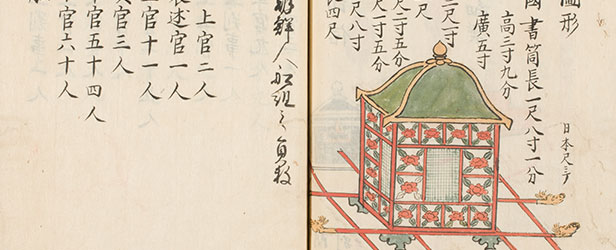 圖形
日本尺ニテ
國書筒長一尺八寸一分
高三寸九分
廣五寸
尺一寸
尺
尺二寸五分
尺一寸五分
尺八寸
四尺
朝鮮人船組之員数
上官二人
述官一人
上官十一人
官三人
官五十四人
官六十人